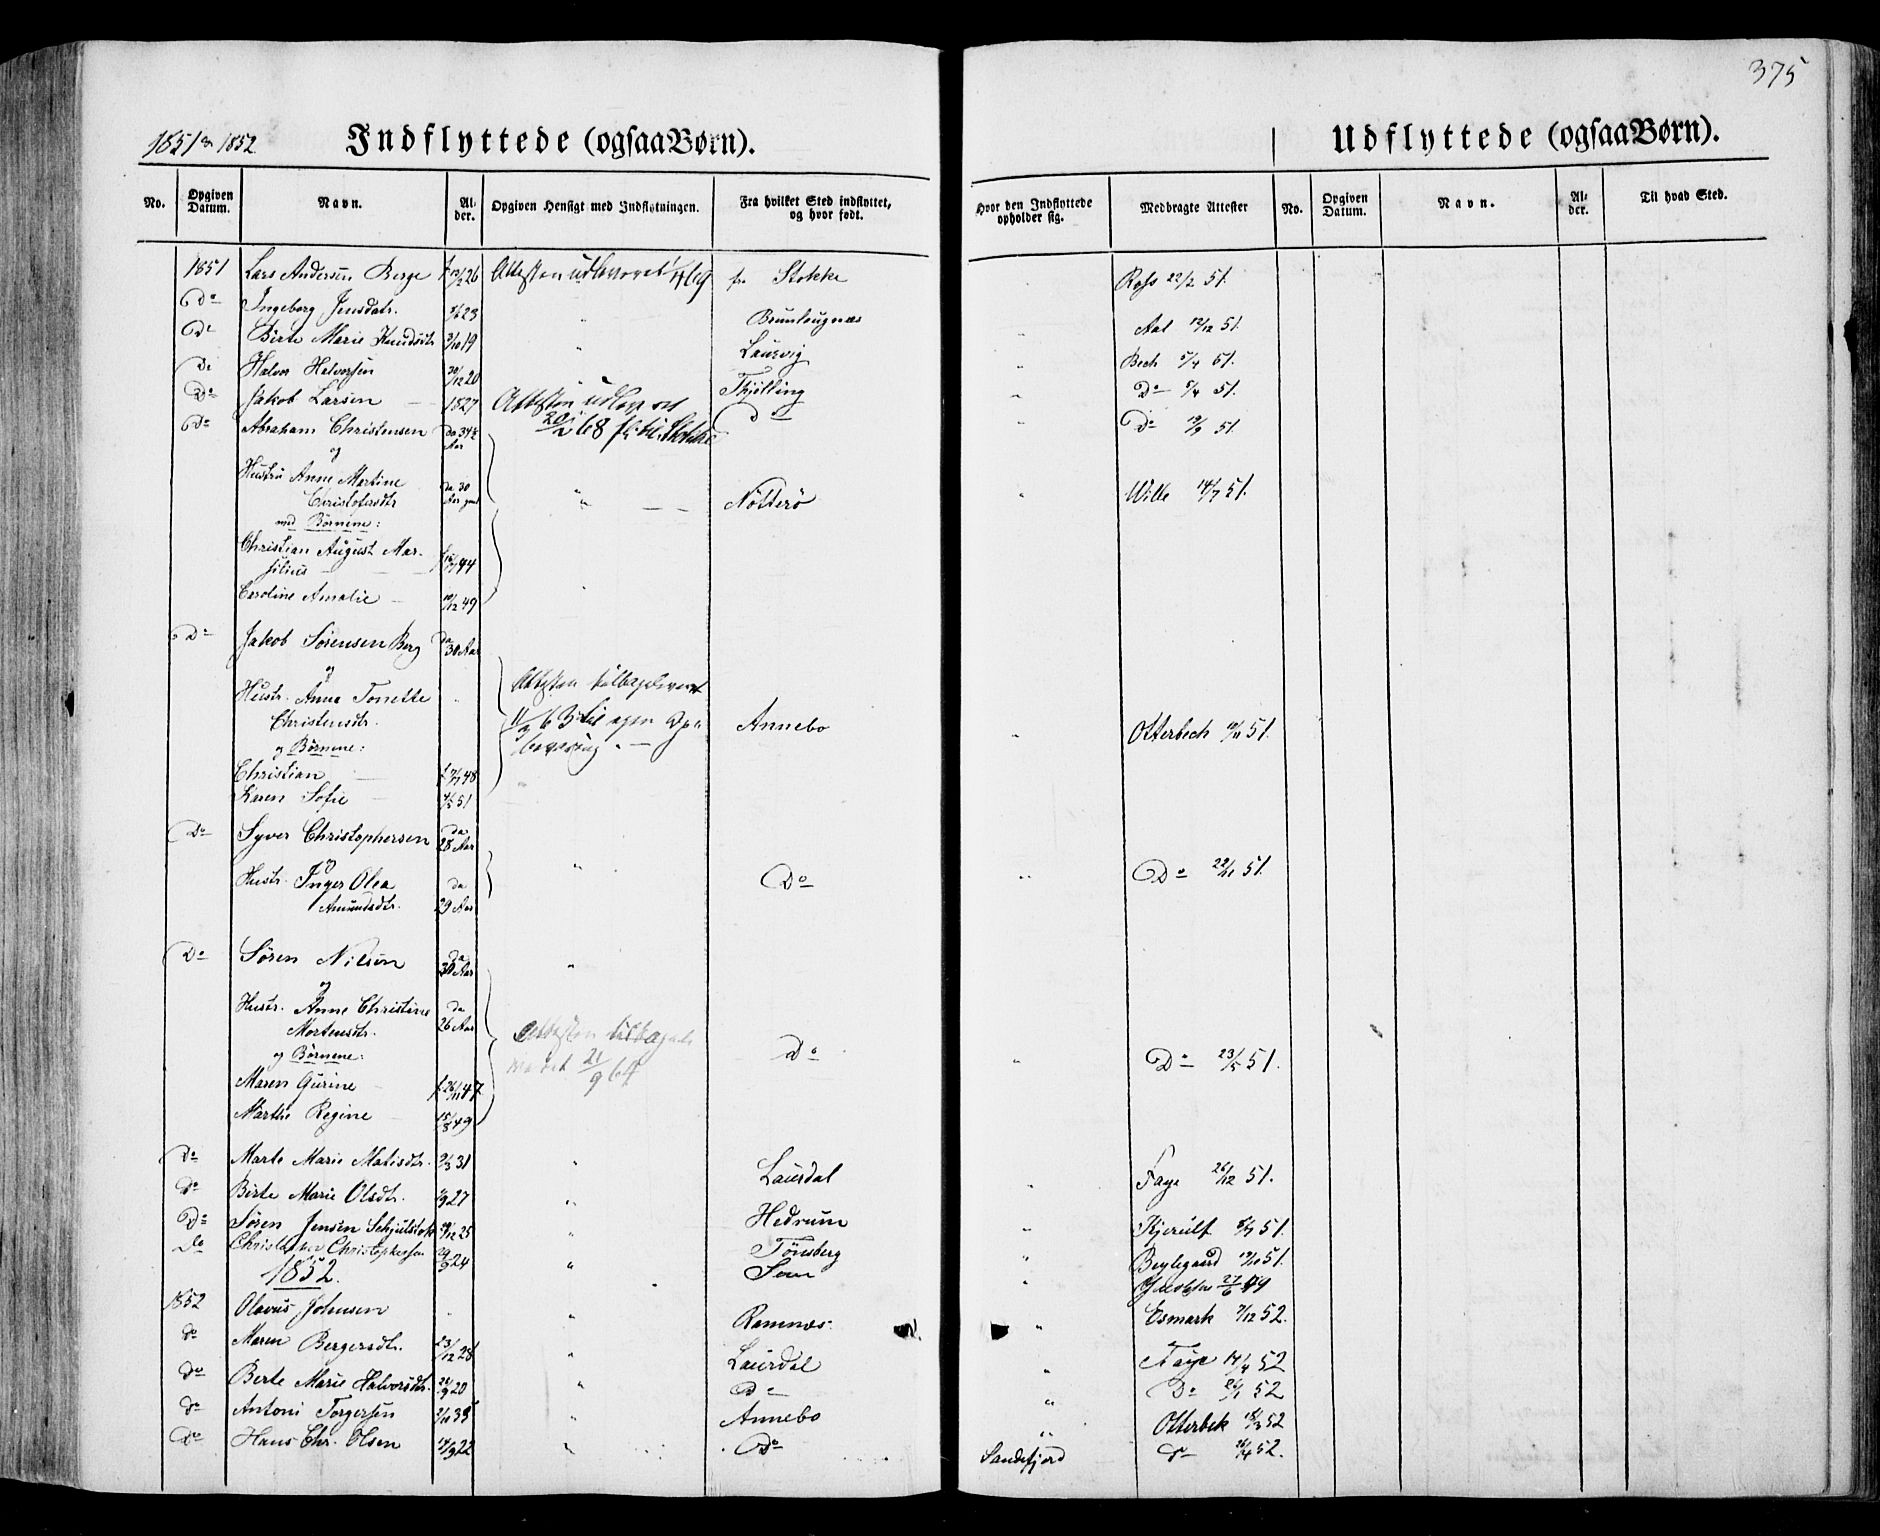 375
1851 & 1852
Indflyttede (ogsaa Børn).
Udflyttede (ogsaa Børn).
No. Opgiven Datum. Navn. Al-der. Opgiven Hensigt med Indflytningen. Fra hvilket Sted indflyttet, og hvor født. Hvor den Indflyttede opholder sig. Medbragte Attester No. Opgiven Datum. Navn. Al-der. Til hvad Sted.
1851 Lars Andersen Berge 26 Attesten udleveret fr. Stokke Ross 22/2 51.
Do Ingeborg Jensdatr. 23 " Brunlaugnæs " Aal 12/12 51.
Do Birte Marie Knudsdtr 19 " Laurvig " Bech 5/4 51.
Do Halvor Halvorsen 30/12 20 Thjølling Do 5/4 51.
Do Jakob Larsen 1827 Attesten " Do 51.
Do Abraham Christensen 20/2 68
og
Hustru Anne Martine Aar " Nøtterø " Wille 14/7 51.
Christofersdtr
med Børnene:
Christian August Mar-
silius 44
Caroline Amalie 10/12 49 "
Do Jakob Sørensen Berg da 30 Aar
og
Hustr. Anne Tonette " Attesten tilbageleveret
Christensdtr. 63 til egen Annebo " Otterbech 51.
og Børnene:
Christian 48
Karen Sofie 51
Do Syver Christophersen da 28 Aar
og
Hustr. Inger Olea da 29 Aar " Do " Do 22/11 51.
Amundsdtr.
Do Søren Nilsen da 30 Aar "
og
Hustr. Anne Christine da 26 Aar
Mortensdtr. Attesten
og Børnene: 21/9 64 Do " Do 23/5 51.
Maren Gurine 26/11 47
Marthe Regine 15/8 49
Do Marte Marie Matisdtr. 31 " Laurdal " Faye 26/12 51.
do Birte Marie Olsdtr. 27 " Hedrum " Kjerulf 51.
Do Søren Jensen 25 " Tønsberg " 51.
Do Christopher Christophersen 24 " Sem " 27/6 49
1852.
1852 Olavus Johnsen " " Ramnæs " Esmark 7/12 52.
do Maren Bergersdtr. 23/12 28 " Laurdal " Faye 14/4 52
do Berte Marie Halvorsdtr. 20 " Do " Do 52
do Antoni Torgersen " Annebo " Otterbek 52
Do Hans Chr. Olsen 22 " Do Sandefjord do 52.